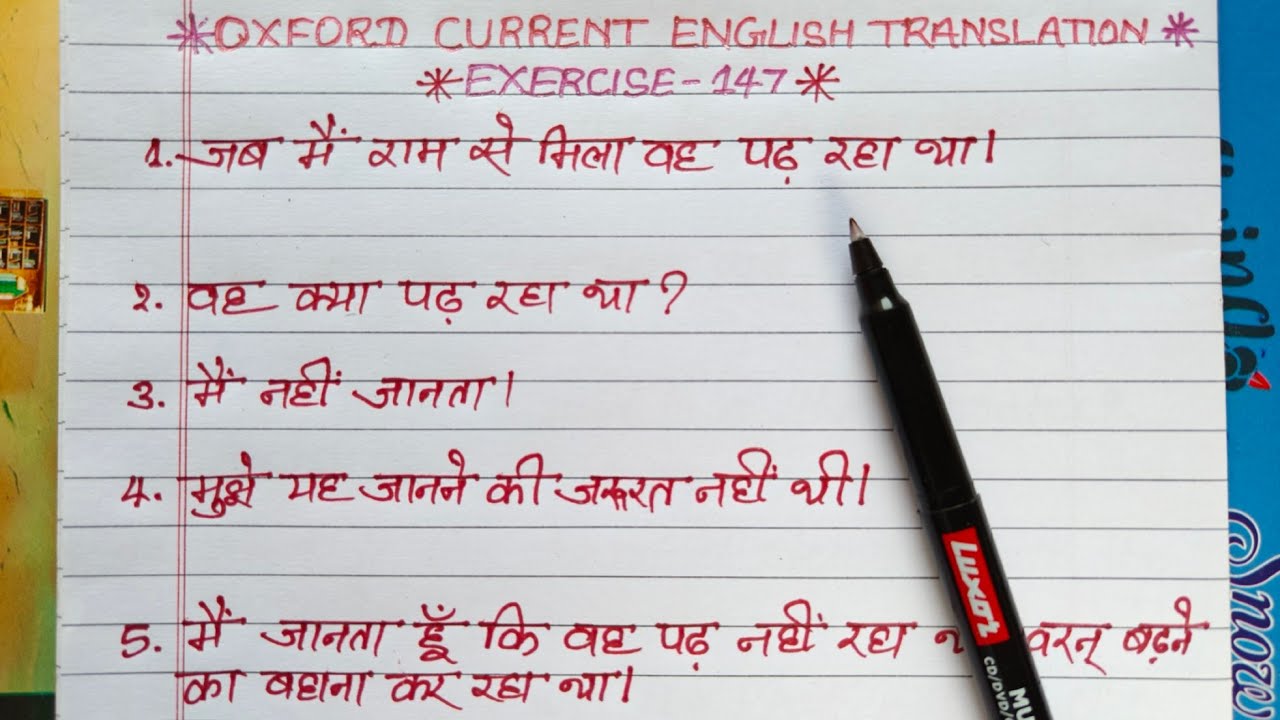 *OXFORD CURRENT ENGLISH TRANSLATION*
*EXERCISE-147*
1. जब मैं राम से मिला वह पढ़ रहा था।
2. वह क्या पढ़ रहा था?
3. मैं नहीं जानता।
4. मुझे यह जानने की जरूरत नहीं थी।
5. मैं जानता हूँ कि वह पढ़ नहीं रहा वरन् बढ़ने
का बहाना कर रहा था।
Luxor
CD/DVD/